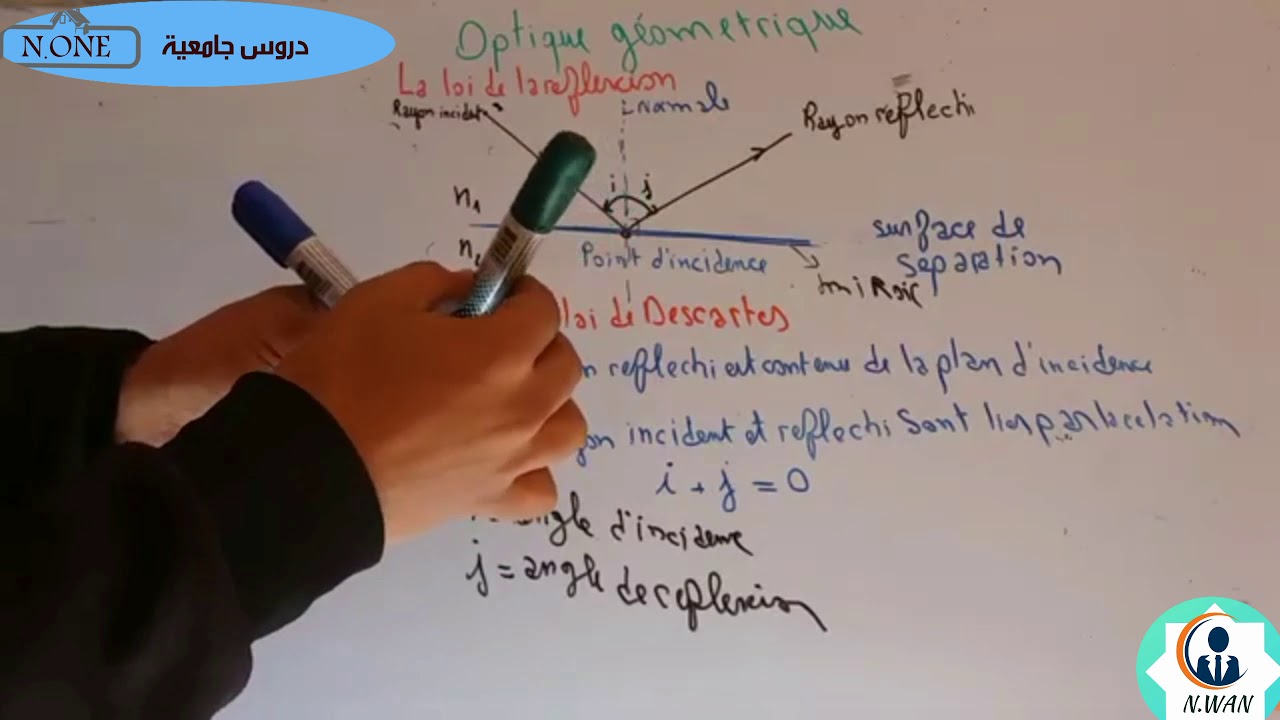 N.ONE
دروس جامعية
Optique géometrique
La loi de la reflexcion
Rayon incident
Normale
Rayon reflechi
i j
n1
n2
Point d'incidence
surface de
separation
miroir
loi de Descartes
n reflechi est contenue de la plan d'incidence
yon incident et reflechi sont lies par la relation
i + j = 0
angle d'incidence
j = angle de reflexcion
N.WAN